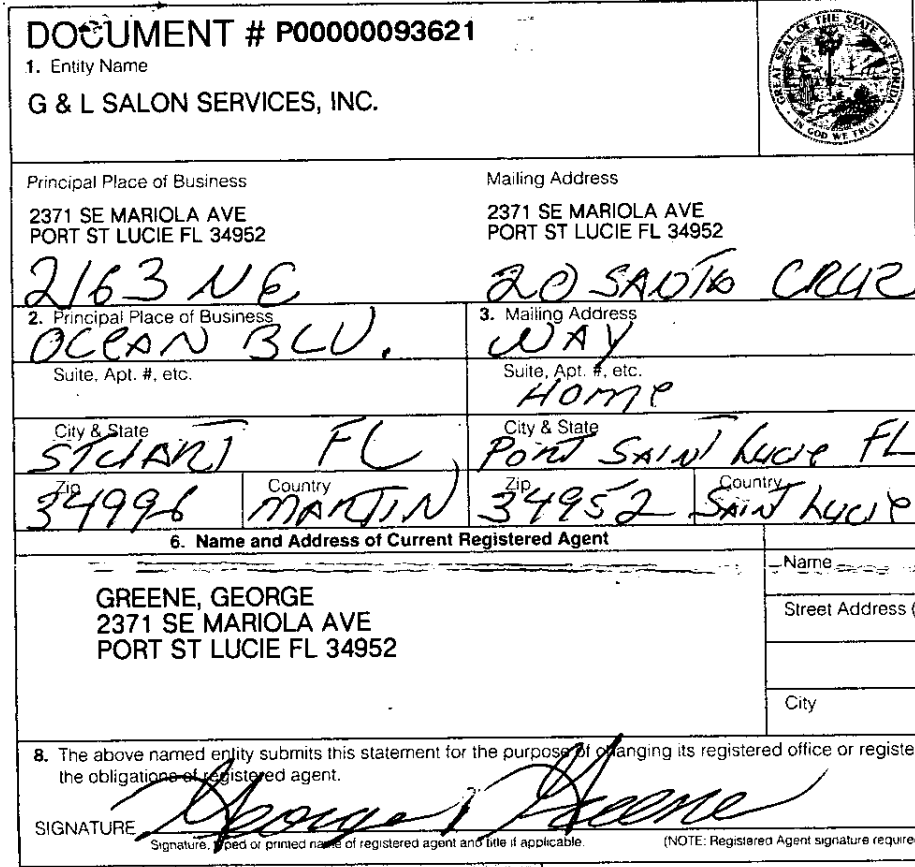 DOCUMENT # P00000093621
1. Entity Name
G & L SALON SERVICES, INC.
GREAT SEAL OF THE STATE OF FLORIDA
IN GOD WE TRUST
Principal Place of Business
2371 SE MARIOLA AVE
PORT ST LUCIE FL 34952
2163 NE
2. Principal Place of Business
OCEAN BLV.
Suite, Apt. #, etc.
City & State
STUART FL
Zip
34996
Country
MARTIN
Mailing Address
2371 SE MARIOLA AVE
PORT ST LUCIE FL 34952
20 SANTA CRUZ
3. Mailing Address
WAY
Suite, Apt. #, etc.
Home
City & State
Port SAINT Lucie FL
Zip
34952
Country
SAINT Lucie
6. Name and Address of Current Registered Agent
GREENE, GEORGE
2371 SE MARIOLA AVE
PORT ST LUCIE FL 34952
Name
Street Address (
City
8. The above named entity submits this statement for the purpose of changing its registered office or registe
the obligations of registered agent.
SIGNATURE George Greene
Signature, typed or printed name of registered agent and title if applicable.
(NOTE: Registered Agent signature require